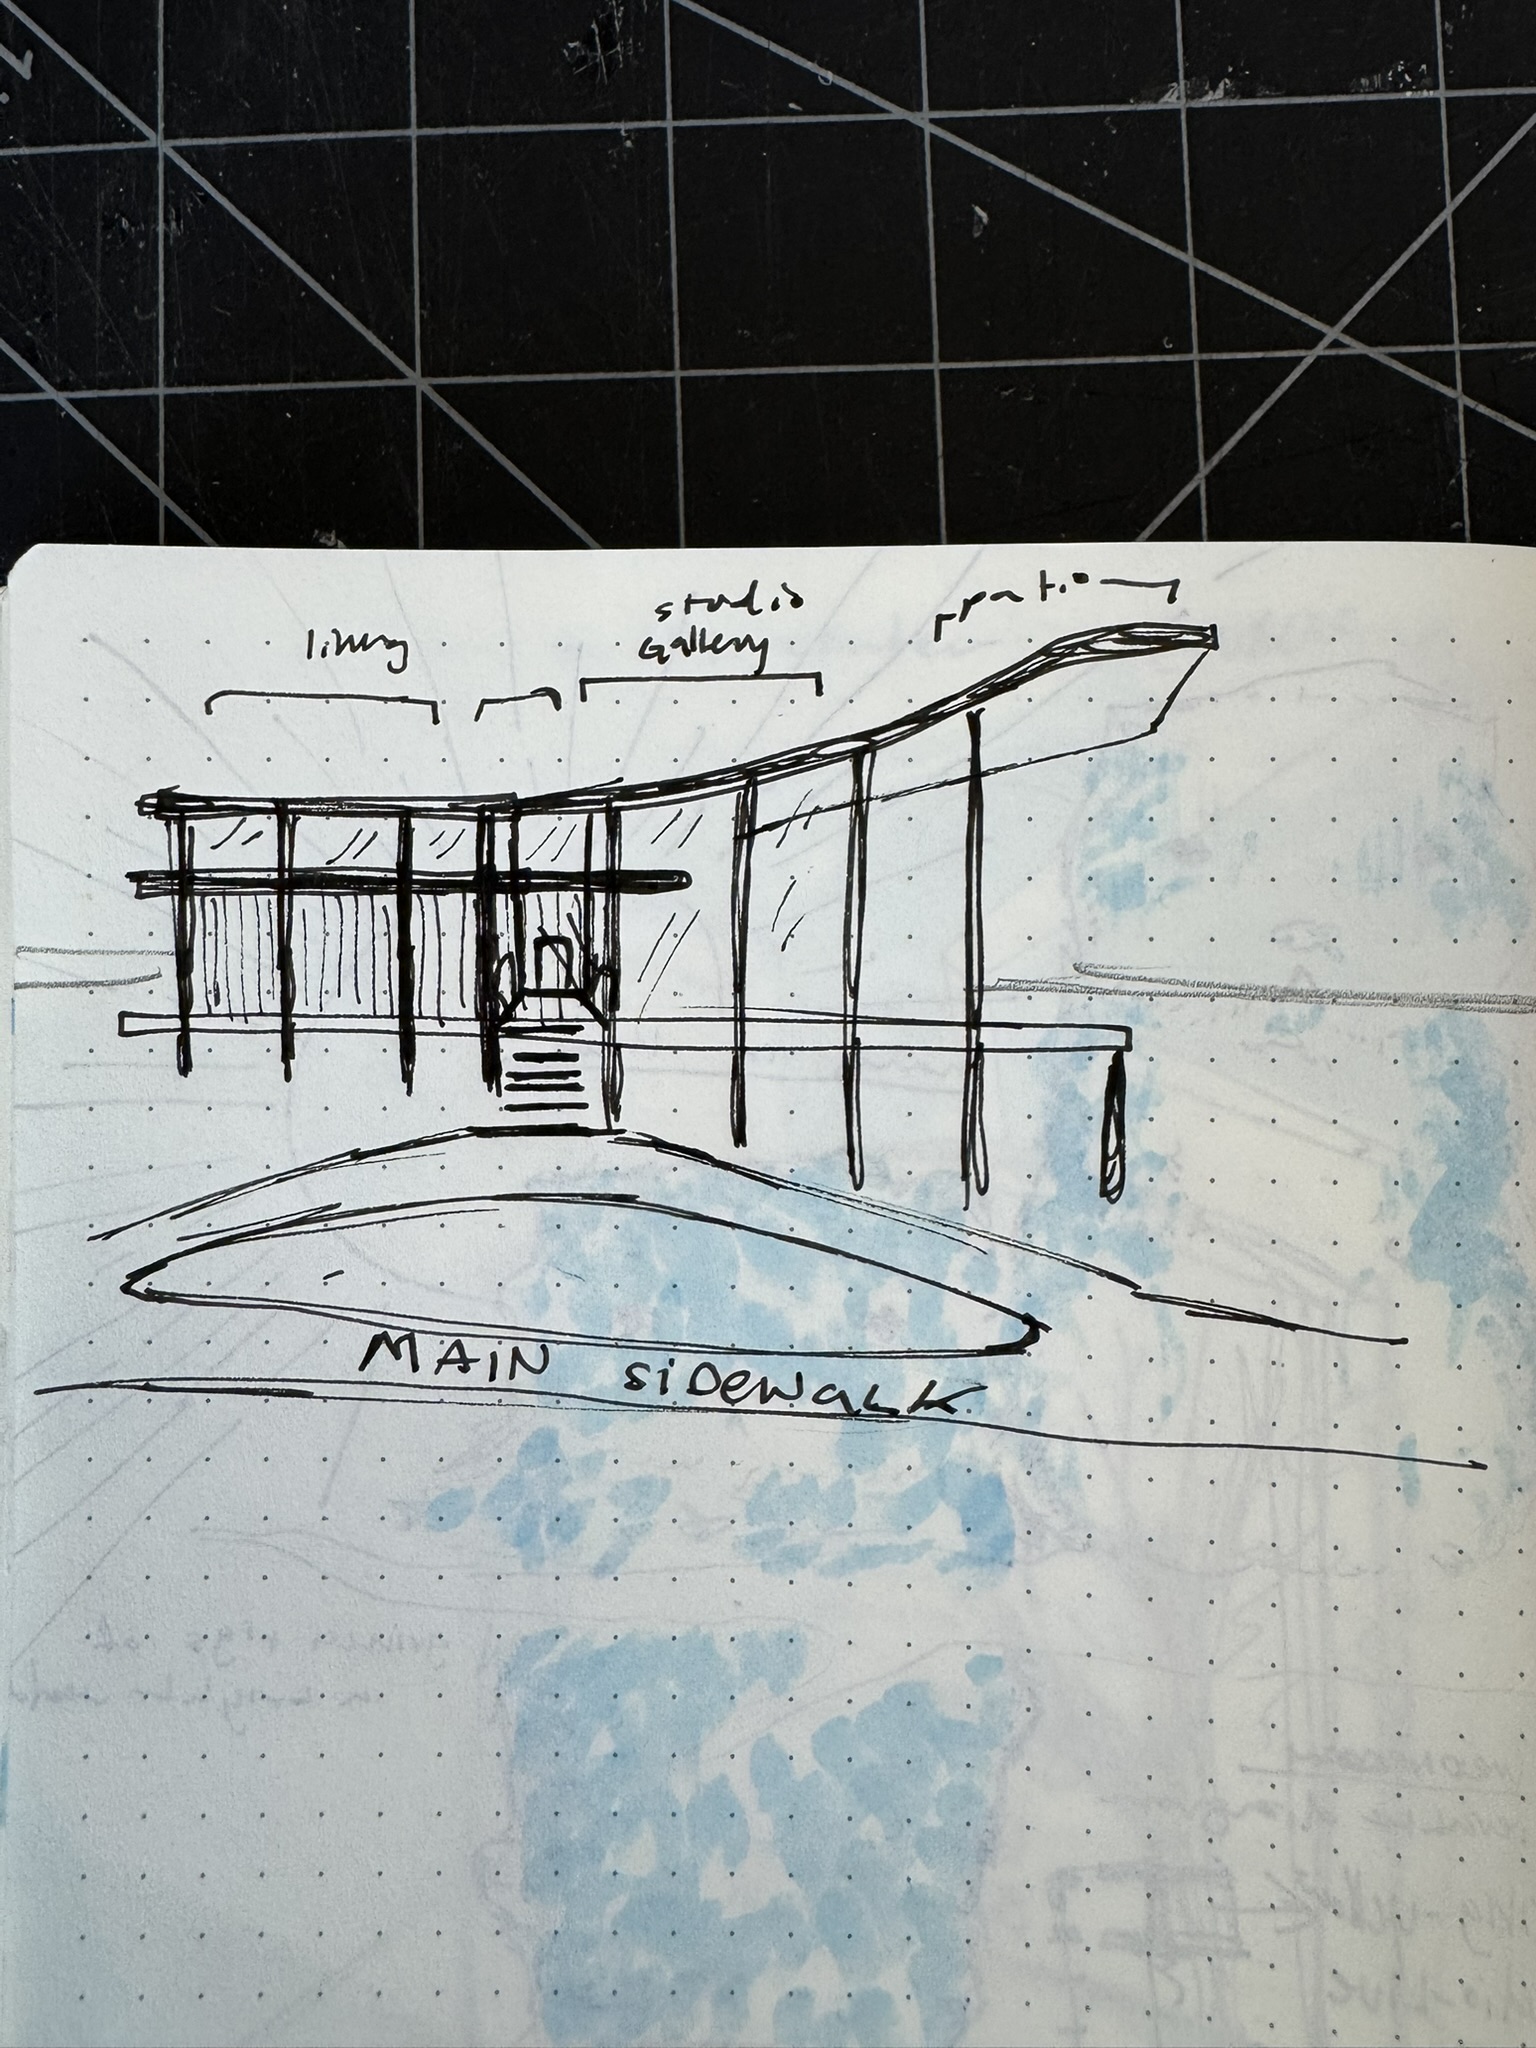 living
studio
gallery
patio
MAiN SiDewaLK